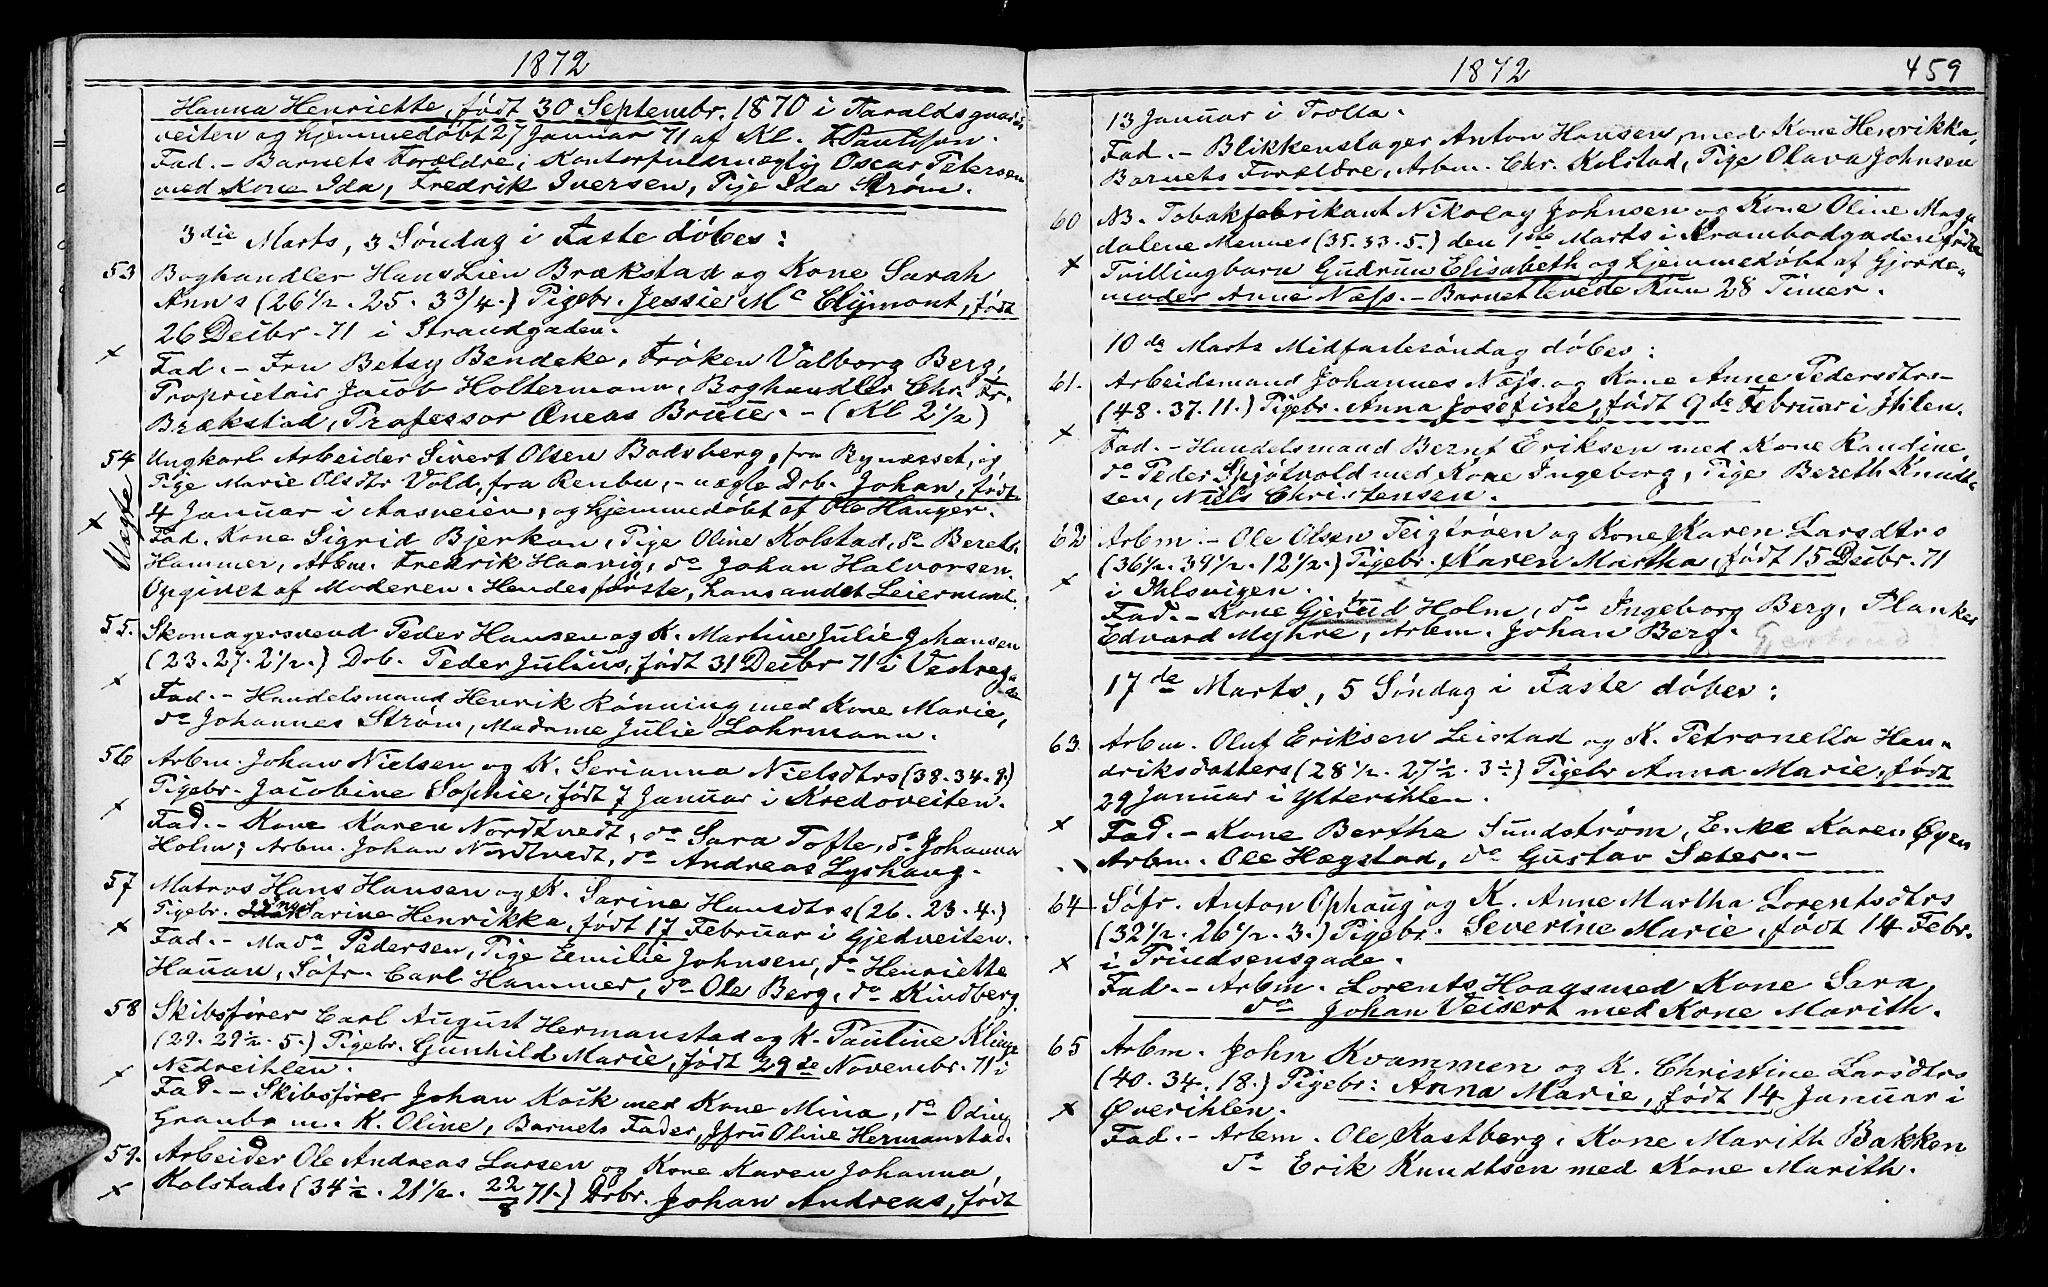 1872
Hanna Henriette, født 30 Septembr. 1870 i Taraldsgaards
veiten og hjemmedøbt 27 Januar 71 af Kl.
Fad. - Barnets Forældre, Kontorfuldmægtig Oscar Petersen
med Kone Ida, Fredrik Iversen, Pige Ida Strøm.
3die Marts, 3 Søndag i Faste døbes:
53 Boghandler Hans Lien Brækstad og Kone Sarah
Anns (26 1/2. 25. 3 3/4.) Pigebr. Jessie Mc Clymont, født
26 Decbr. 71 i Strandgaden.
x Fad. - Fru Betsy Bendeke, Frøken Valborg Berg,
Proprietair Jacob Holtermann, Boghandler Chr. Fr.
Brækstad, Professor Oneas Bruce. - (Kl 2 1/2)
54 Ungkarl Arbeider Sivert Olsen Bodsberg, fra Bynæsset, og
Pige Marie Olsdtr Vold, fra Renbu, - uægte Drb. Johan, født
x Uægte 4 Januar i Aasveien, og hjemmedøbt af Ole Hanger.
Fad. Kone Sigrid Bjerkan, Pige Oline Kolstad, do Bereth
Hammer, Arbm. Fredrik Haarvig, do Johan Halvorsen.
Opgivet af Moderen. Hendes første, hans andet Leiermaal.
55. Skomagersvend Peder Hansen og K. Martine Julie Johansen
(23. 27. 2 1/2.) Drb. Peder Julius, født 31 Decbr 71 i Vestregade
x Fad. - Handelsmand Henrik Rønning med Kone Marie,
do Johannes Strøm, Madame Julie Lohrmann.
56 Arbm. Johan Nielsen og K. Serianna Nielsdtrs (38. 34. 9.)
Pigebr. Jacobine Sophie, født 7 Januar i Kredoveiten.
x Fad. - Kone Karen Nordtvedt, do Sara Tofte, do Johanna
Holm; Arbm. Johan Nordtvedt, do Andreas Lyshaug.
57 Matros Hans Hansen og K. Sarine Hansdtrs (26. 23. 4.)
Pigebr. Sarine Henrikka, født 17 Februar i Gjedveiten.
x Fad. - Mado Pedersen, Pige Emilie Johnsen, do Henriette
Hauan, Søfr. Carl Hammer, do Ole Berg, do Kindberg.
58 Skibsfører Carl August Hermanstad og K. Pauline Klinge
(29. 29 1/2. 5.) Pigebr. Gunhild Marie, født 29de Novembr. 71 i
x Nedreihlen.
Fad. - Skibsfører Johan Kock med Kone Mina, do Oding
Granbo m. K. Oline, Barnets Fader, Jfru Oline Hermanstad.
59. Arbeider Ole Andreas Larsen og Kone Karen Johanna
x Kolstads (34 1/2. 21 1/2. 22/8 71.) Drbr. Johan Andreas, født
1872 459
13 Januar i Trolla.
Fad. - Blikkenslager Anton Hansen, med Kone Henrikka,
Barnets Forældre, Arbm. Chr. Kolstad, Pige Olava Johnsen
60 NB. Tobakfabrikant Nikolay Johnsen og Kone Oline Maga
dalene Mennes (35. 33. 5.) den 1ste Marts i Krambodgaden fødte
x Tvillingbarn Gudrun Elisabeth og hjemmedøbt af Gjorde-
moder Anne Næss. - Barnet levede kun 28 Timer.
10de Marts Midfastesøndag døbes:
61. Arbeidsmand Johannes Næss. og Kone Anne Pedersdtrs-
(48. 37. 11.) Pigebr. Anna Josefine, født 9de Februar i Hilen.
x Fad. - Handelsmand Bernt Eriksen med Kone Randine,
do Peder Spjøtvold med Kone Ingeborg, Pige Bereth Knudt-
sen, Niels Christensen.
62 Arbm. - Ole Olsen Teigtrøen og Kone Karen Larsdtrs
(36 1/2. 39 1/2. 12 1/2.) Pigebr. Karen Martha, født 15 Decbr. 71
x i Ihlsvigen.
Fad. - Kone Gjertrud Holm, do Ingeborg Berg, Planke
Edvard Myhre, Arbm. Johan Berg. Gjertrud
17de Marts, 5 Søndag i Faste døbes:
63 Arbm. Oluf Eriksen Leistad og K. Petronella Hen-
driksdatters (28 1/2. 27 1/2. 3 1/2) Pigebr Anna Marie, født
29 Januar i Ytterihlen.
x Fad. - Kone Berthe Sundstrøm, Enke Karen Øyen
Arbm. Ole Hægstad, do Gustav Sæter. -
64 Søfr. Anton Ophaug og K. Anne Martha Lorentsdtrs
(32 1/2. 26 1/2. 3.) Pigebr. Severine Marie, født 14 Febr.
x i Trindsensgade.
Fad. - Arbm. Lorents Haagsmed Kone Sara,
do Johan Veisert med Kone Marith.
65 Arbm. John Kvammen og K. Christine Larsdtrs
(40. 34. 18.) Pigebr: Anna Marie, født 14 Januar i
x Øverihlen.
Fad. - Arbm. Ole Kastberg, Kone Marith Bakken
do Erik Knudtsen med Kone Marith.